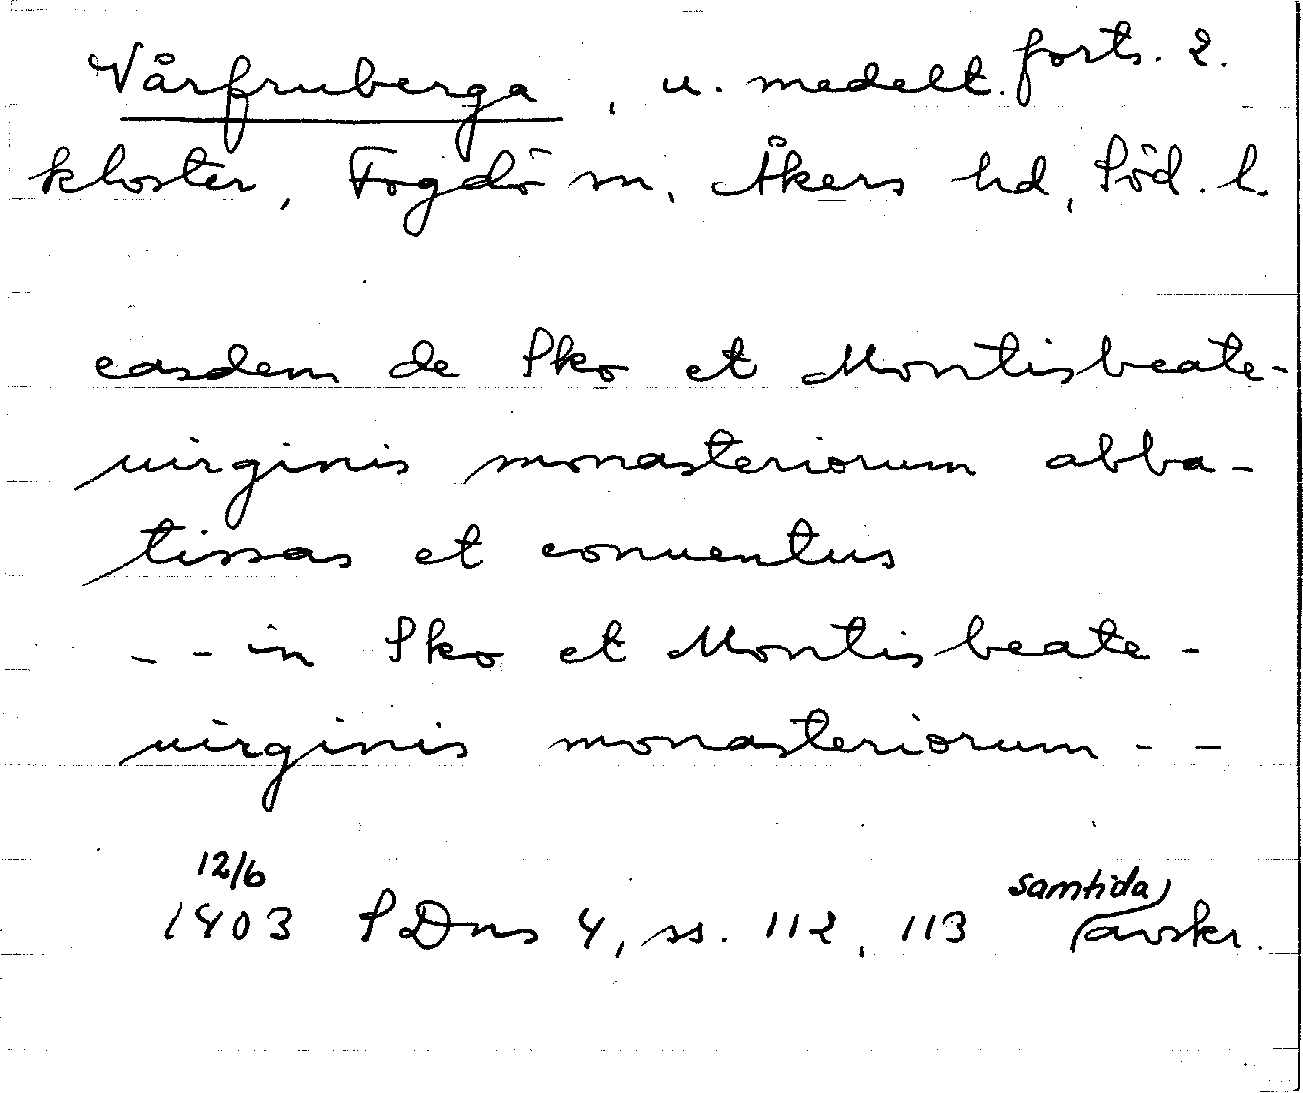 Vårfruberga, u. medelt. forts. 2.
kloster, Fogdö sn, Åkers hd, Söd. l.
easdem de Sko et Montisbeate-
uirginis monasteriorum abba-
tissas et conuentus
-- in Sko et Montisbeate-
uirginis monasteriorum --
12/6 samtida
1403 SDns 4, ss. 112, 113 avskr.